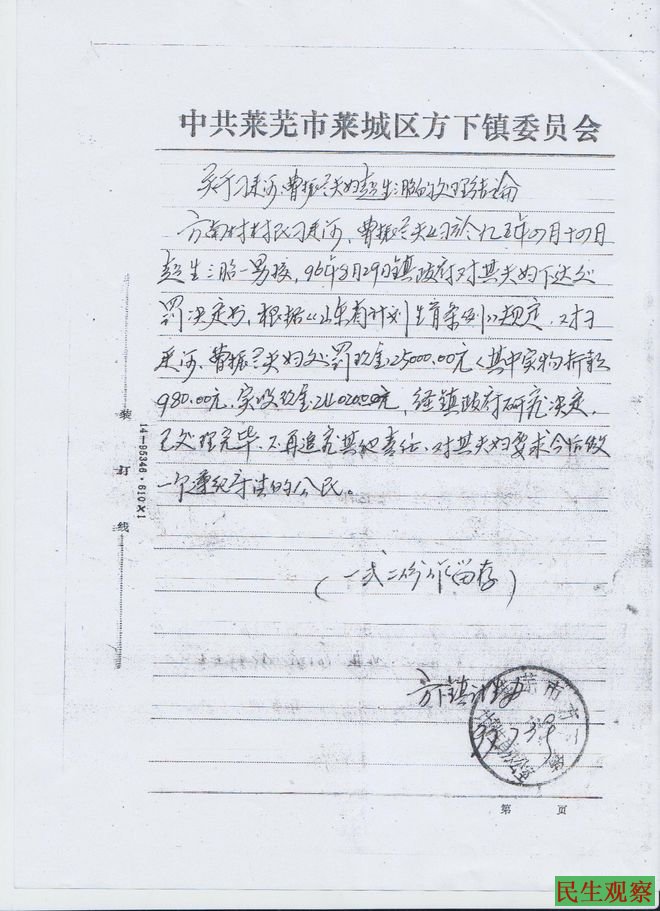 中共莱芜市莱城区方下镇委员会
关于刁来河、曹振兰夫妇超生三胎的处理结论
方南村村民刁来河、曹振兰夫妇於九五年四月十四日
超生三胎一男孩，96年8月29日镇政府对其夫妇下达处
罚决定书，根据《山东省计划生育条例》规定，对刁
来河、曹振兰夫妇处罚现金25000.00元（其中实物折款
980.00元，实收现金24020.00元，经镇政府研究决定，
已处理完毕，不再追究其他责任、对其夫妇要求今后做
一个遵纪守法的公民。
（一式二份作留存）
方下镇计生办
装订线
14—95346·610×1
第 页
民生观察